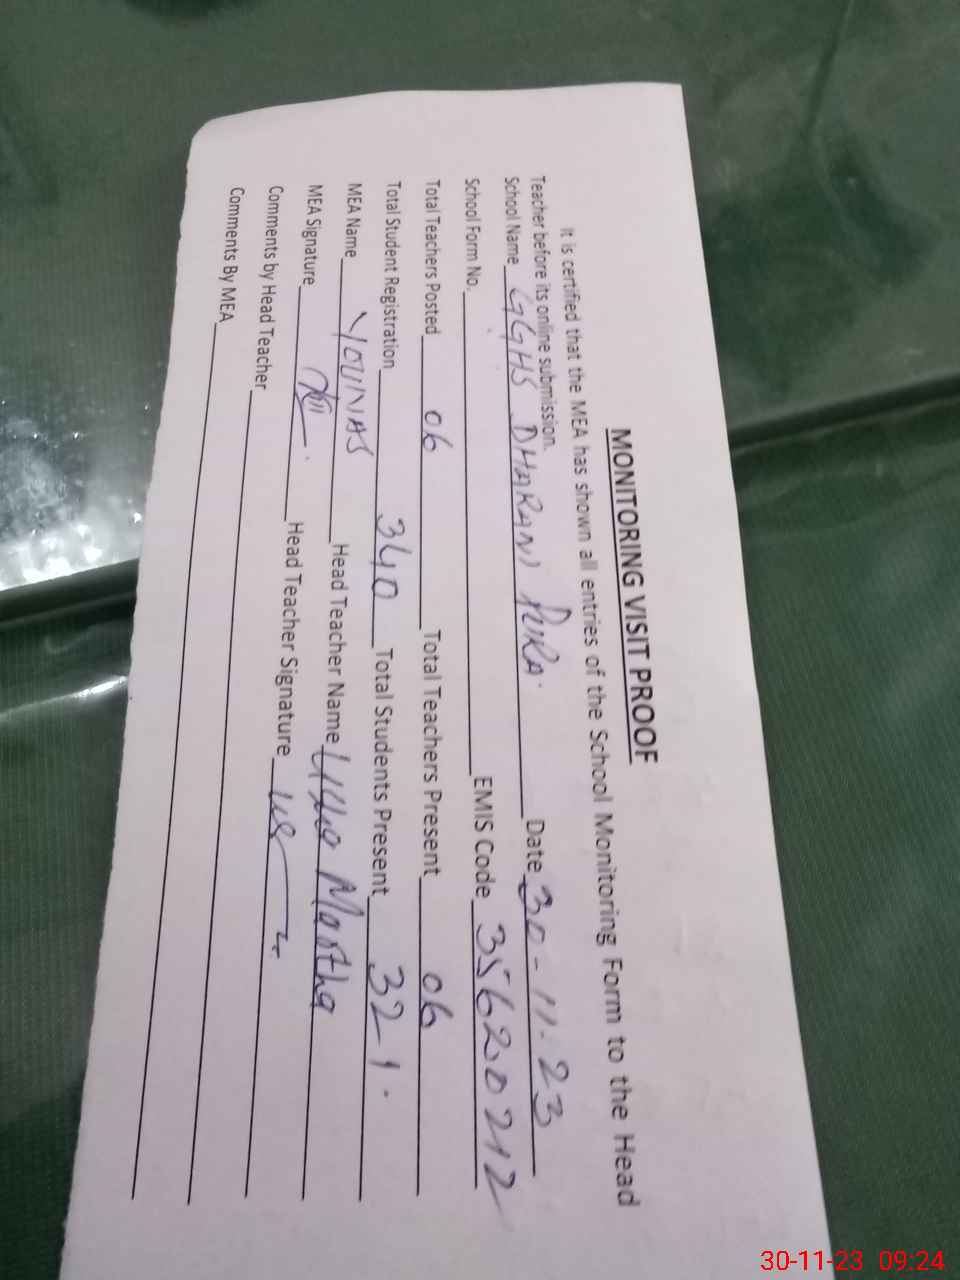 MONITORING VISIT PROOF
It is certified that the MEA has shown all entries of the School Monitoring Form to the Head
Teacher before its online submission.
School Name GGHS DHARANI PURA. Date 30-11-23
School Form No. EMIS Code 35620212
Total Teachers Posted 06 Total Teachers Present 06
Total Student Registration 340 Total Students Present 321.
MEA Name YOUNAS Head Teacher Name Martha
MEA Signature Head Teacher Signature
Comments by Head Teacher
Comments By MEA
30-11-23 09:24